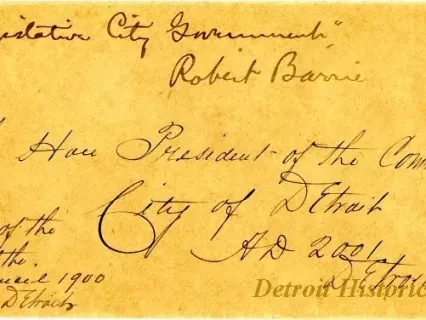 islative City Government"
Robert Barrie
Hon President of the Com
City of Detroit
of the
the
A D 2001
uncil 1900
Detroit
Detroit
Detroit Historic